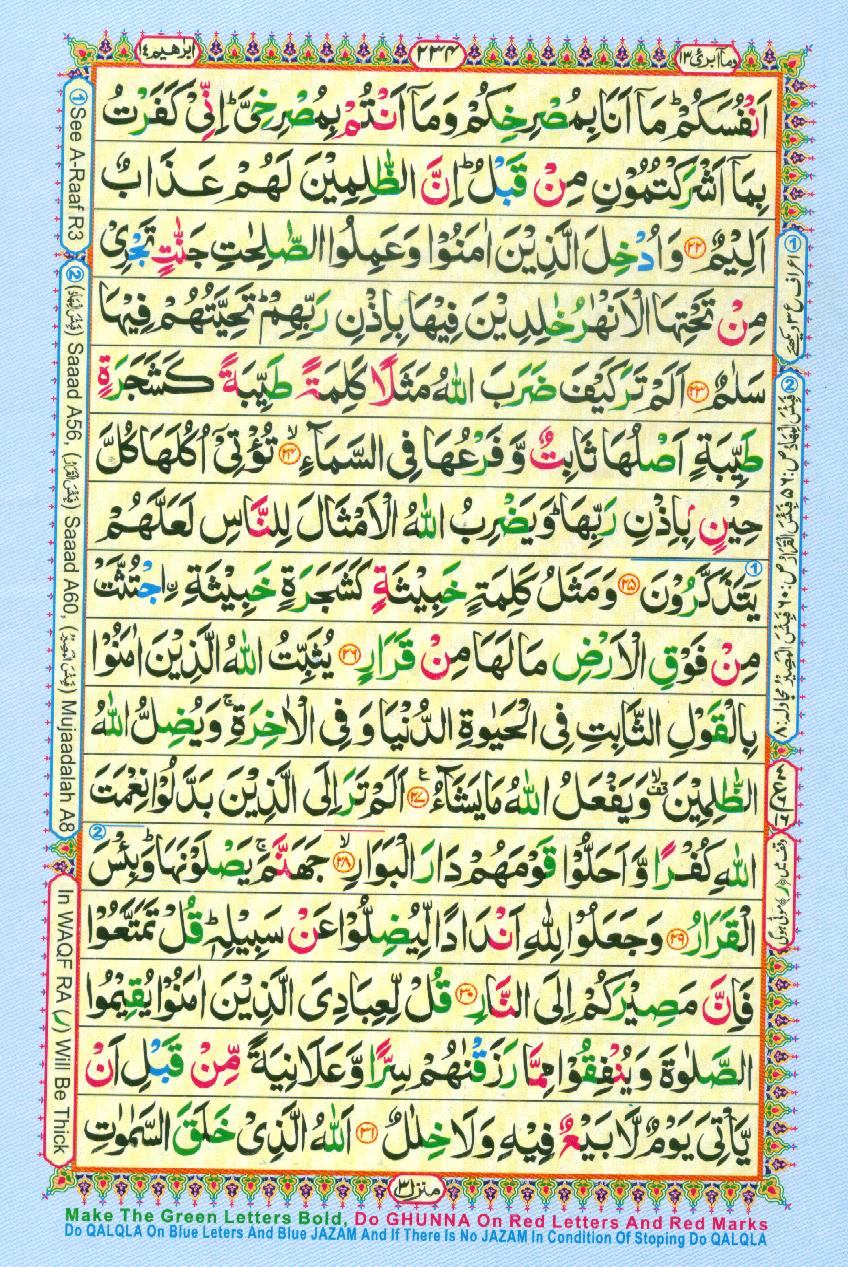 وَمَآ أُبَرِّئُ ١٣
٢٣٤
اِبْرٰهِيْم ١٤
اَنْفُسَكُمْ ؕ مَاۤ اَنَا بِمُصْرِخِكُمْ وَمَاۤ اَنْتُمْ بِمُصْرِخِيَّ ؕ اِنِّيْ كَفَرْتُ
بِمَاۤ اَشْرَكْتُمُوْنِ مِنْ قَبْلُ ؕ اِنَّ الظّٰلِمِيْنَ لَهُمْ عَذَابٌ
اَلِيْمٌ ﴿۲۲﴾ وَاُدْخِلَ الَّذِيْنَ اٰمَنُوْا وَعَمِلُوا الصّٰلِحٰتِ جَنّٰتٍ تَجْرِيْ
مِنْ تَحْتِهَا الْاَنْهٰرُ خٰلِدِيْنَ فِيْهَا بِاِذْنِ رَبِّهِمْ ؕ تَحِيَّتُهُمْ فِيْهَا
سَلٰمٌ ﴿۲۳﴾ اَلَمْ تَرَ كَيْفَ ضَرَبَ اللّٰهُ مَثَلًا كَلِمَةً طَيِّبَةً كَشَجَرَةٍ
طَيِّبَةٍ اَصْلُهَا ثَابِتٌ وَّ فَرْعُهَا فِي السَّمَآءِ ۙ﴿۲۴﴾ تُؤْتِيْۤ اُكُلَهَا كُلَّ
حِيْنٍۭ بِاِذْنِ رَبِّهَا ؕ وَيَضْرِبُ اللّٰهُ الْاَمْثَالَ لِلنَّاسِ لَعَلَّهُمْ
يَتَذَكَّرُوْنَ ﴿۲۵﴾ وَمَثَلُ كَلِمَةٍ خَبِيْثَةٍ كَشَجَرَةٍ خَبِيْثَةِ ِۨاجْتُثَّتْ
مِنْ فَوْقِ الْاَرْضِ مَا لَهَا مِنْ قَرَارٍ ﴿۲۶﴾ يُثَبِّتُ اللّٰهُ الَّذِيْنَ اٰمَنُوْا
بِالْقَوْلِ الثَّابِتِ فِي الْحَيٰوةِ الدُّنْيَا وَ فِي الْاٰخِرَةِ ۚ وَيُضِلُّ اللّٰهُ
الظّٰلِمِيْنَ ۙ وَيَفْعَلُ اللّٰهُ مَا يَشَآءُ ﴿۲۷﴾ اَلَمْ تَرَ اِلَى الَّذِيْنَ بَدَّلُوْا نِعْمَتَ
اللّٰهِ كُفْرًا وَّ اَحَلُّوْا قَوْمَهُمْ دَارَ الْبَوَارِ ۙ﴿۲۸﴾ جَهَنَّمَ ۚ يَصْلَوْنَهَا ؕ وَبِئْسَ
الْقَرَارُ ﴿۲۹﴾ وَجَعَلُوْا لِلّٰهِ اَنْدَادًا لِّيُضِلُّوْا عَنْ سَبِيْلِهٖ ؕ قُلْ تَمَتَّعُوْا
فَاِنَّ مَصِيْرَكُمْ اِلَى النَّارِ ﴿۳۰﴾ قُلْ لِّعِبَادِيَ الَّذِيْنَ اٰمَنُوْا يُقِيْمُوا
الصَّلٰوةَ وَيُنْفِقُوْا مِمَّا رَزَقْنٰهُمْ سِرًّا وَّعَلَانِيَةً مِّنْ قَبْلِ اَنْ
يَّاْتِيَ يَوْمٌ لَّا بَيْعٌ فِيْهِ وَلَا خِلٰلٌ ﴿۳۱﴾ اَللّٰهُ الَّذِيْ خَلَقَ السَّمٰوٰتِ
منزل ٣
① See A-Raaf R3
② (فَبِئْسَ الْمِهَادُ) Saaad A56, (فَبِئْسَ الْقَرَارُ) Saaad A60, (فَبِئْسَ الْمَصِيْرُ) Mujaadalah A8
In WAQF RA (ر) Will Be Thick
Make The Green Letters Bold, Do GHUNNA On Red Letters And Red Marks
Do QALQLA On Blue Leters And Blue JAZAM And If There Is No JAZAM In Condition Of Stoping Do QALQLA